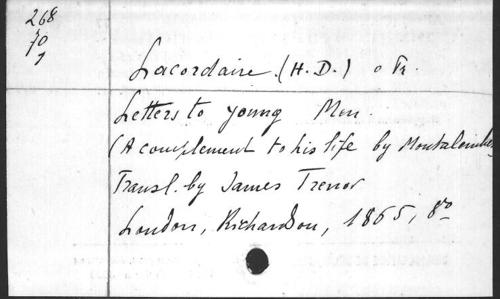 268
70
1
Lacordaire. (H. D.) o Fr.
Letters to young Men.
(A complement to his life by Montalembe
Transl. by James Trenor
London, Richardson, 1865, 8o